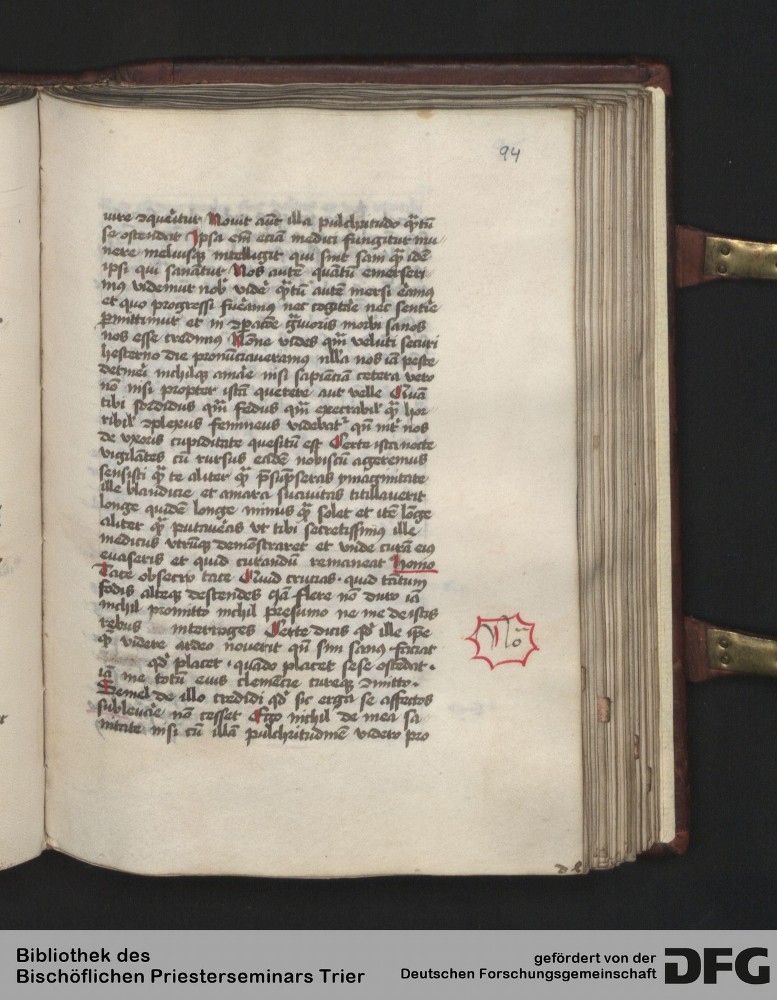 94
iure ɔqueritur Nouit aūt illa pulchritudo qn̄tū
se ostendat Ipsa em̄ eciam medici fungitur mu
nere meliusqꝫ intelligit qui sint sani qᷓ idē
ipsi qui sanātur Nos autē quātū emerseri
mus videmur nob vidē qn̄tū autē mersi eramus
et quo progressi fueramus nec cogitare nec sentire
ꝑmittimur et in ɔꝑacōe gᷓuioris morbi sanos
nos esse credimus Nōne vides qm̄ veluti securi
hesterno die pronūciaueramus nlla nos iā peste
detineri nichilqꝫ amare nisi sapienciā cetera vero
nō nisi propter istā querere aut velle Quā
tibi sordidus qm̄ fedus qm̄ execrabilꝭ qᷓ hor
ribilꝭ ɔplexus femineus videbatᷣ qn̄ int nos
de vxoris cupiditate quesitū est Certe ista nocte
vigilātes cū rursus eadē nobiscū ageremus
sensisti qᷓ te aliter qᷓ p̄sūpseras ymaginate
ille blandicie et amara suauitas titillauerit
longe quidē longe minus qᷓ solet et itē lōge
aliter qᷓ putaueras vt tibi secretissimus ille
medicus vtrūqꝫ demōstraret et vnde curā eiꝰ
euaseris et quid curandū remaneat Homo
Tace obsecro tace Quid crucias · quid tātum
fodis alteqꝫ descendes Iā flere nō duro iā
nichil promitto nichil presumo ne me de istis
rebus interroges Certe dicis qd̕ ille ipse
qᷓ videre ardeo nouerit qn̄ sim sanus · faciat
qd̕ placet · quādo placet sese ostēdat ·
iā me totū eius clemēcie cureqꝫ ɔmitto ·
Semel de illo credidi qd̕ sic erga se affectos
subleuare nō cesset Ego nichil de mea sa
nitate nisi cū illā pulchritudinē videro pro
Nō
Bibliothek des
Bischöflichen Priesterseminars Trier
gefördert von der
Deutschen Forschungsgemeinschaft
DFG